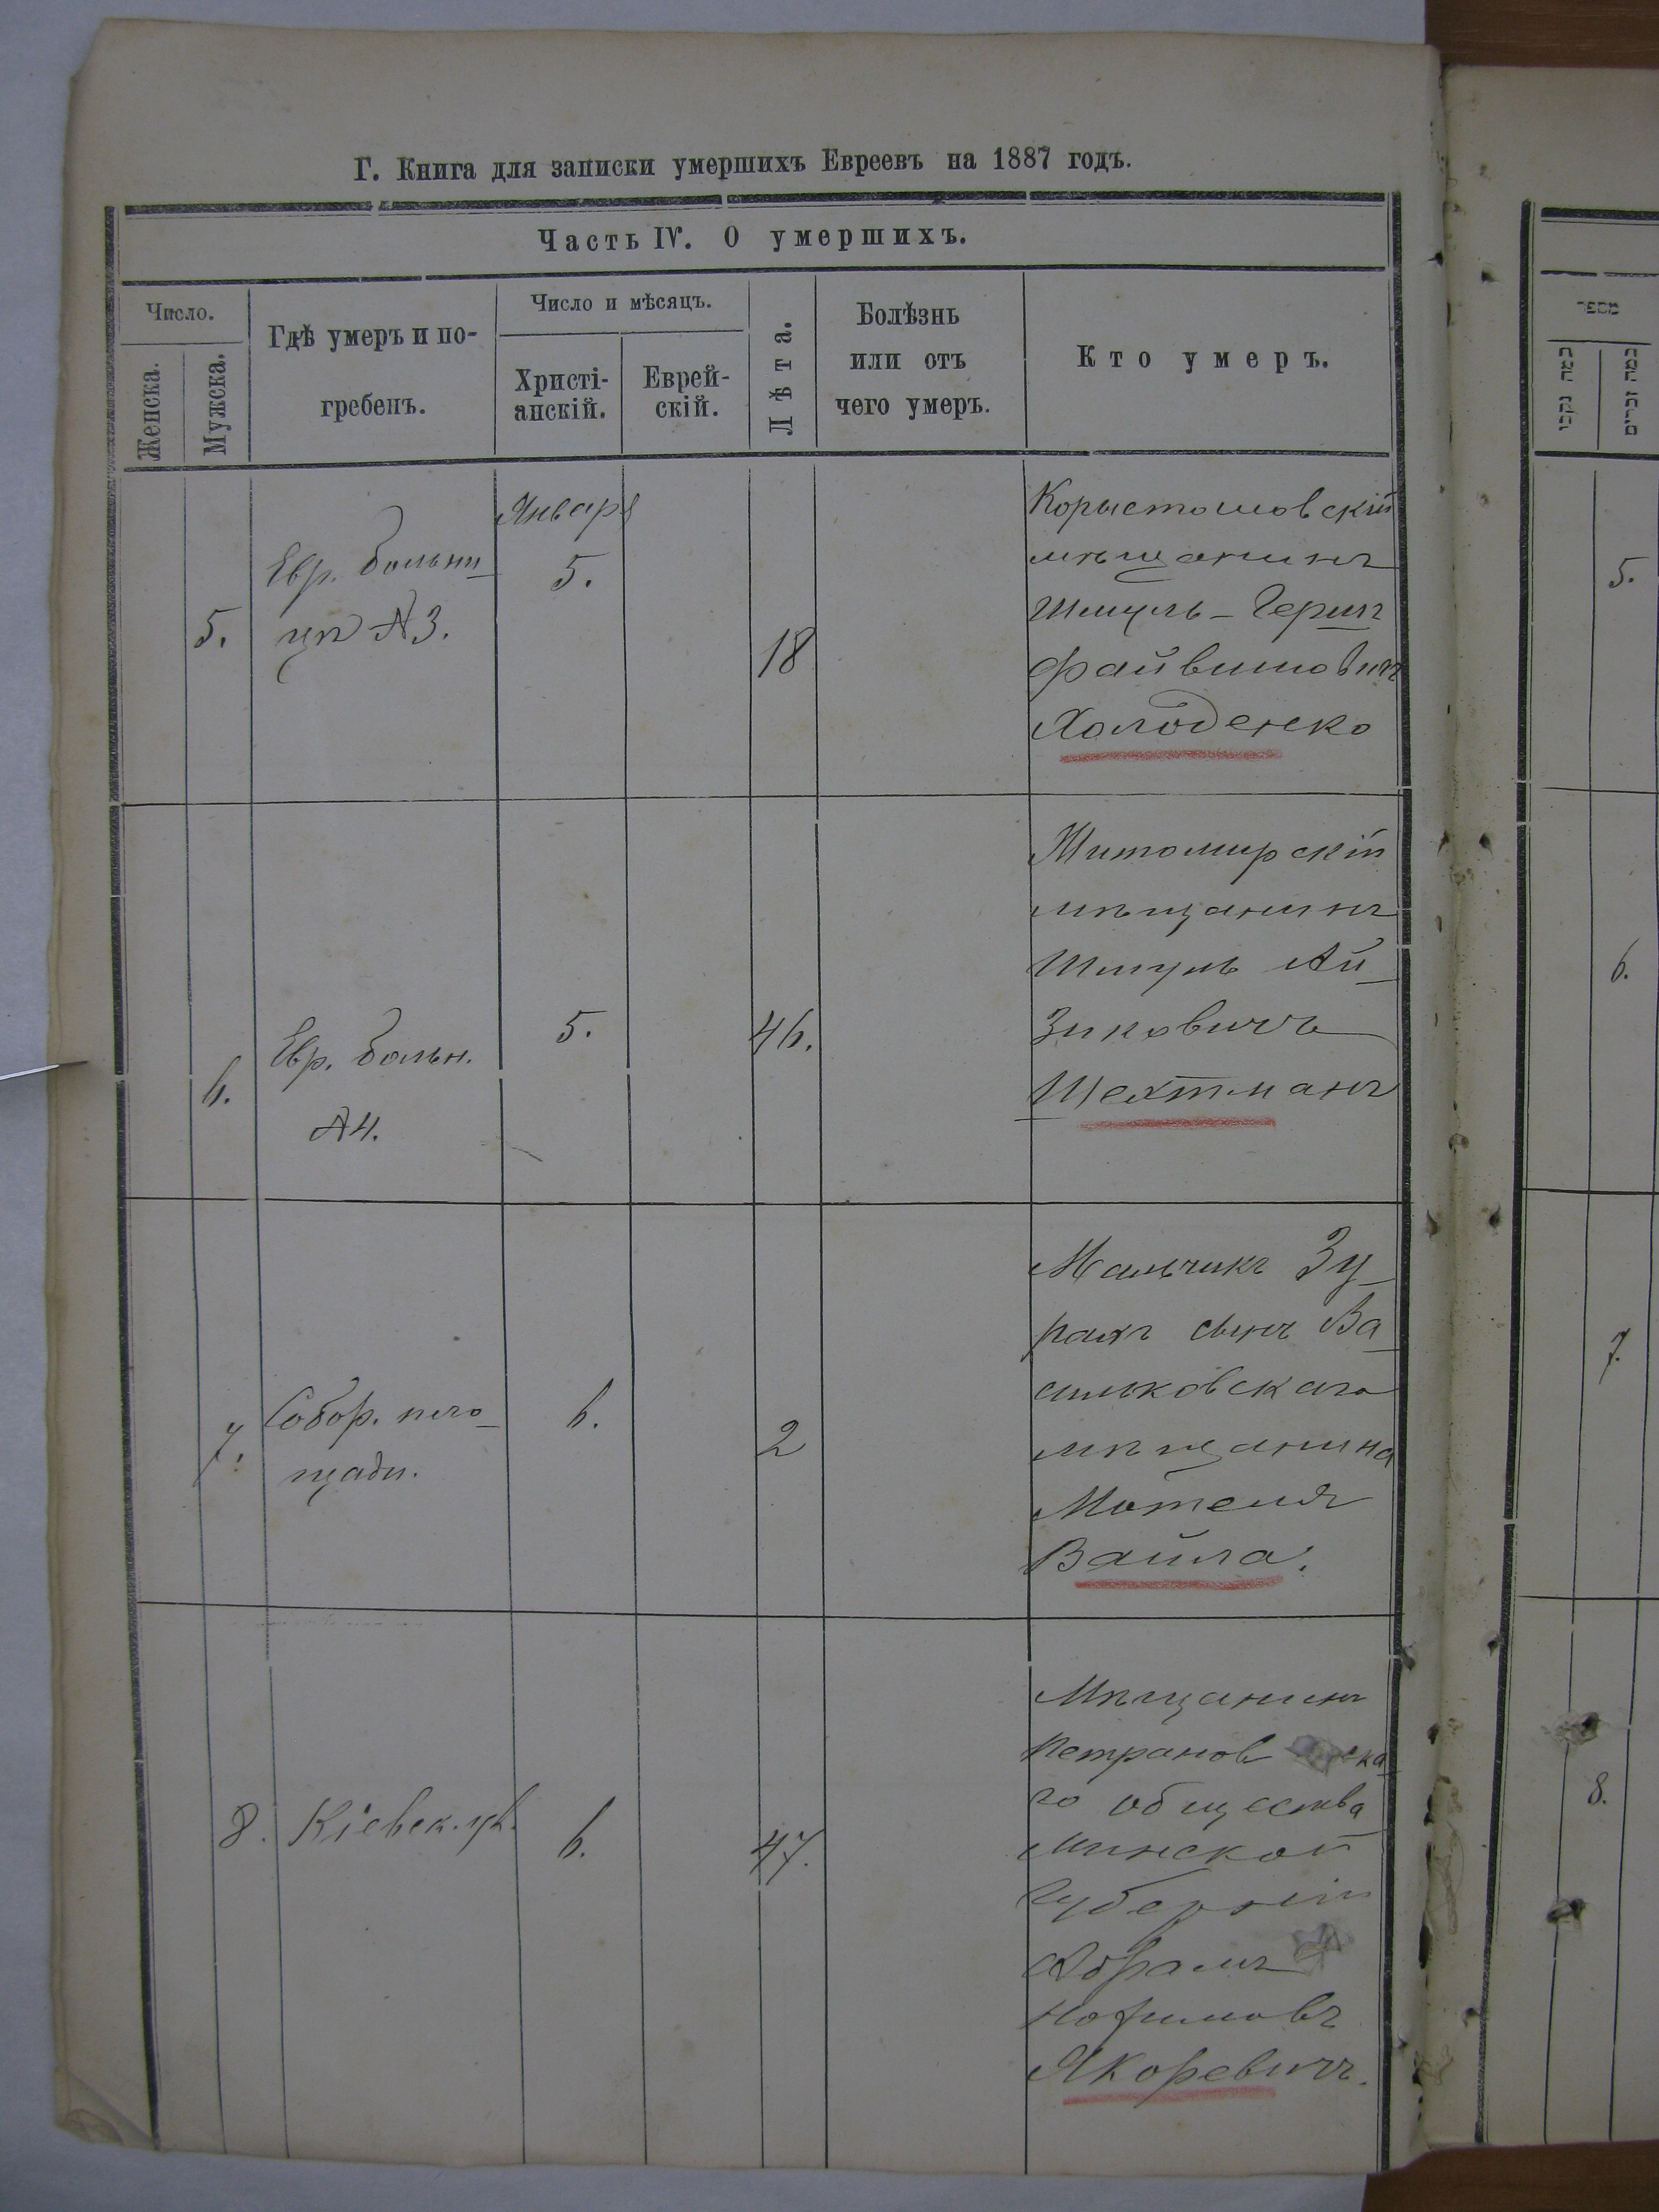 Г. Книга для записки умершихъ Евреевъ на 1887 годъ.
Часть IV. О умершихъ.
Число.
Женска.
Мужска.
Гдѣ умеръ и по-
гребенъ.
Число и мѣсяцъ.
Христі-
анскій.
Еврей-
скій.
Лѣта.
Болѣзнь
или отъ
чего умеръ.
Кто умеръ.
5.
Евр. больни-
цѣ №3.
Январ
5.
18
Корыстошовскій
мѣщанинъ
Шмуль-Герш
Файвишовичъ
Холоденко
6.
Евр. больн.
№4.
5.
46.
Житомирскій
мѣщанинъ
Шмуль Ай-
зиковичъ
Шехтманъ
7.
Собор. пло-
щади.
6.
2
Мальчикъ Зу-
рахъ сынъ Ва-
сильковскаго
мѣщанина
Мотеля
Вайла.
8.
Кіевск. ул.
6.
47.
Мѣщанинъ
Петранов ска-
го общества
Минской
Губерніи
Абрамъ
Нохимовъ
Якоревичъ.
מספר
כמה נקבו
כמה זכרים
5.
6.
7.
8.